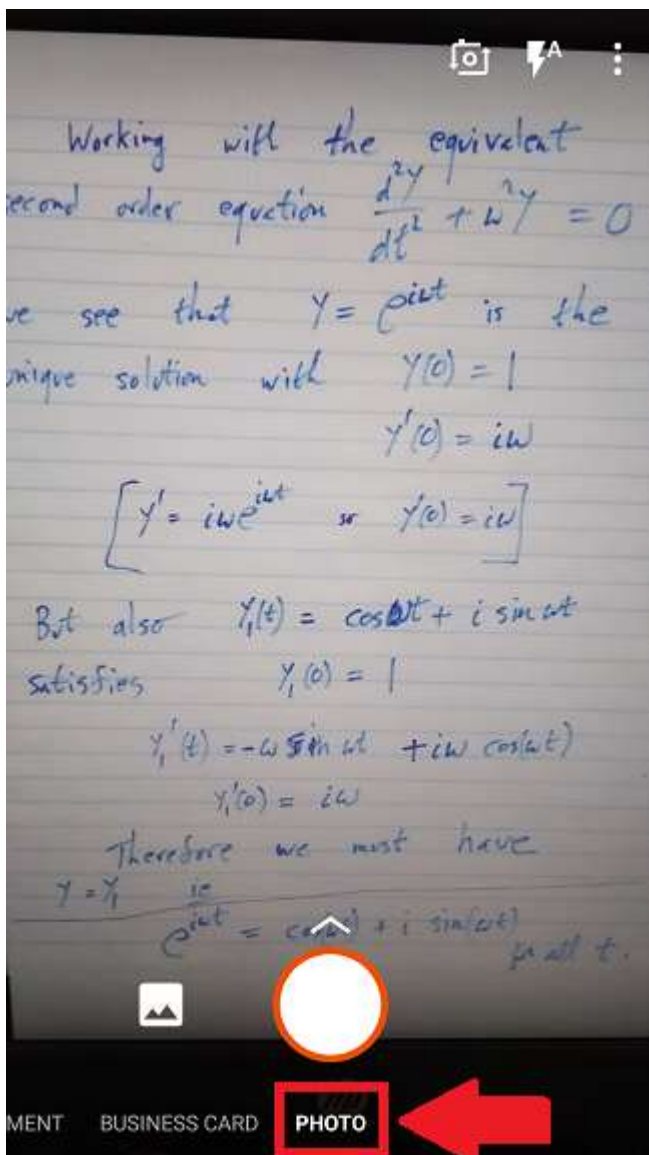 A
Working with the equivalent
econd order equation d²y/dt² + ω²y = 0
we see that y = e^{iωt} is the
unique solution with y(0) = 1
y'(0) = iω
[y' = iωe^{iωt} so y'(0) = iω]
But also y₁(t) = cos ωt + i sin ωt
satisfies y₁(0) = 1
y₁'(t) = -ω sin ωt + iω cos(ωt)
y₁'(0) = iω
Therefore we must have
y = y₁ ie
e^{iωt} = cos(ωt) + i sin(ωt)
for all t.
MENT BUSINESS CARD PHOTO